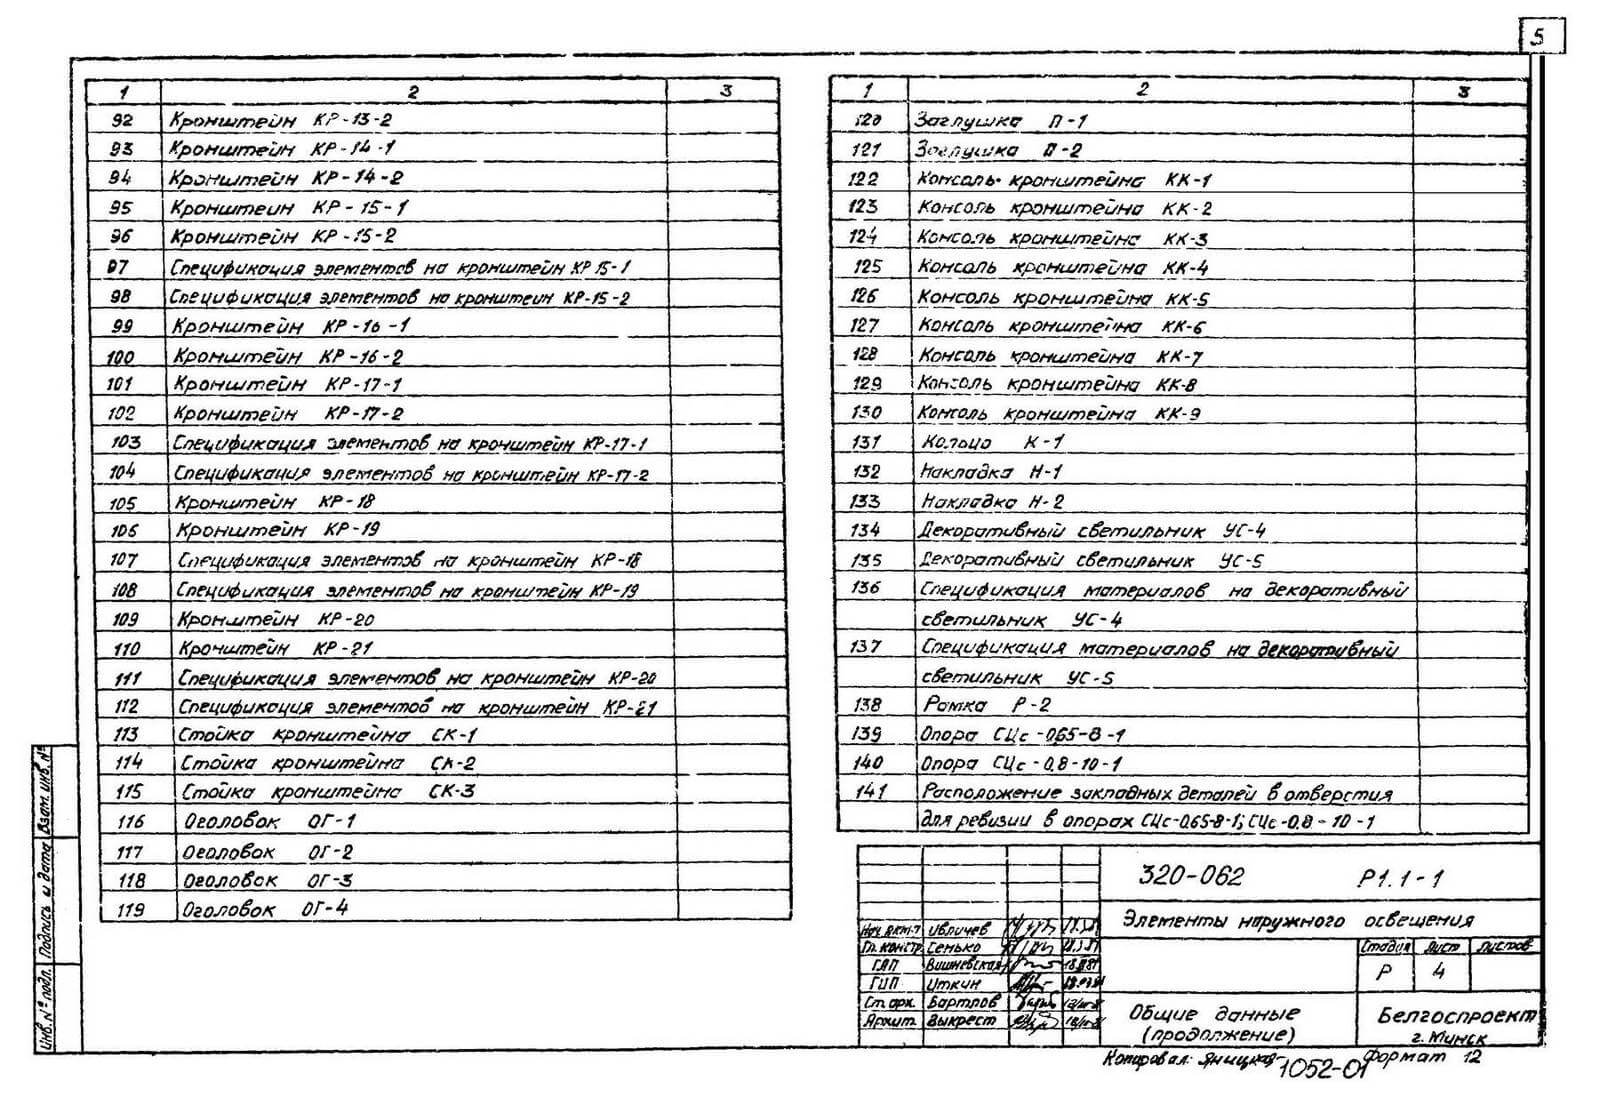 5
1 2 3
92 Кронштейн КР-13-2
93 Кронштейн КР-14-1
94 Кронштейн КР-14-2
95 Кронштейн КР-15-1
96 Кронштейн КР-15-2
97 Спецификация элементов на кронштейн КР 15-1
98 Спецификация элементов на кронштейн КР-15-2
99 Кронштейн КР-16-1
100 Кронштейн КР-16-2
101 Кронштейн КР-17-1
102 Кронштейн КР-17-2
103 Спецификация элементов на кронштейн КР-17-1
104 Спецификация элементов на кронштейн КР-17-2
105 Кронштейн КР-18
106 Кронштейн КР-19
107 Спецификация элементов на кронштейн КР-18
108 Спецификация элементов на кронштейн КР-19
109 Кронштейн КР-20
110 Кронштейн КР-21
111 Спецификация элементов на кронштейн КР-20
112 Спецификация элементов на кронштейн КР-21
113 Стойка кронштейна СК-1
114 Стойка кронштейна СК-2
115 Стойка кронштейна СК-3
116 Оголовок ОГ-1
117 Оголовок ОГ-2
118 Оголовок ОГ-3
119 Оголовок ОГ-4
1 2 3
120 Заглушка П-1
121 Заглушка П-2
122 Консоль кронштейна КК-1
123 Консоль кронштейна КК-2
124 Консоль кронштейна КК-3
125 Консоль кронштейна КК-4
126 Консоль кронштейна КК-5
127 Консоль кронштейна КК-6
128 Консоль кронштейна КК-7
129 Консоль кронштейна КК-8
130 Консоль кронштейна КК-9
131 Кольцо К-1
132 Накладка Н-1
133 Накладка Н-2
134 Декоративный светильник УС-4
135 Декоративный светильник УС-5
136 Спецификация материалов на декоративный
светильник УС-4
137 Спецификация материалов на декоративный
светильник УС-5
138 Рамка Р-2
139 Опора СЦс-0,65-8-1
140 Опора СЦс-0,8-10-1
141 Расположение закладных деталей в отверстия
для ревизии в опорах СЦс-0,65-8-1; СЦс-0,8-10-1
320-062 Р1.1-1
Элементы наружного освещения
Стадия Лист Листов
Р 4
Общие данные
(продолжение)
Белгоспроект
г. Минск
Ивличев
Гл. констр. Сенько
ГАП Вишневская
ГИП Иткин
Ст. арх. Бартлов
Архит. Выкрест
Копировал: Яницкая
1052-01
Формат 12
Взам. инв. №
Подпись и дата
Инв. № подл.